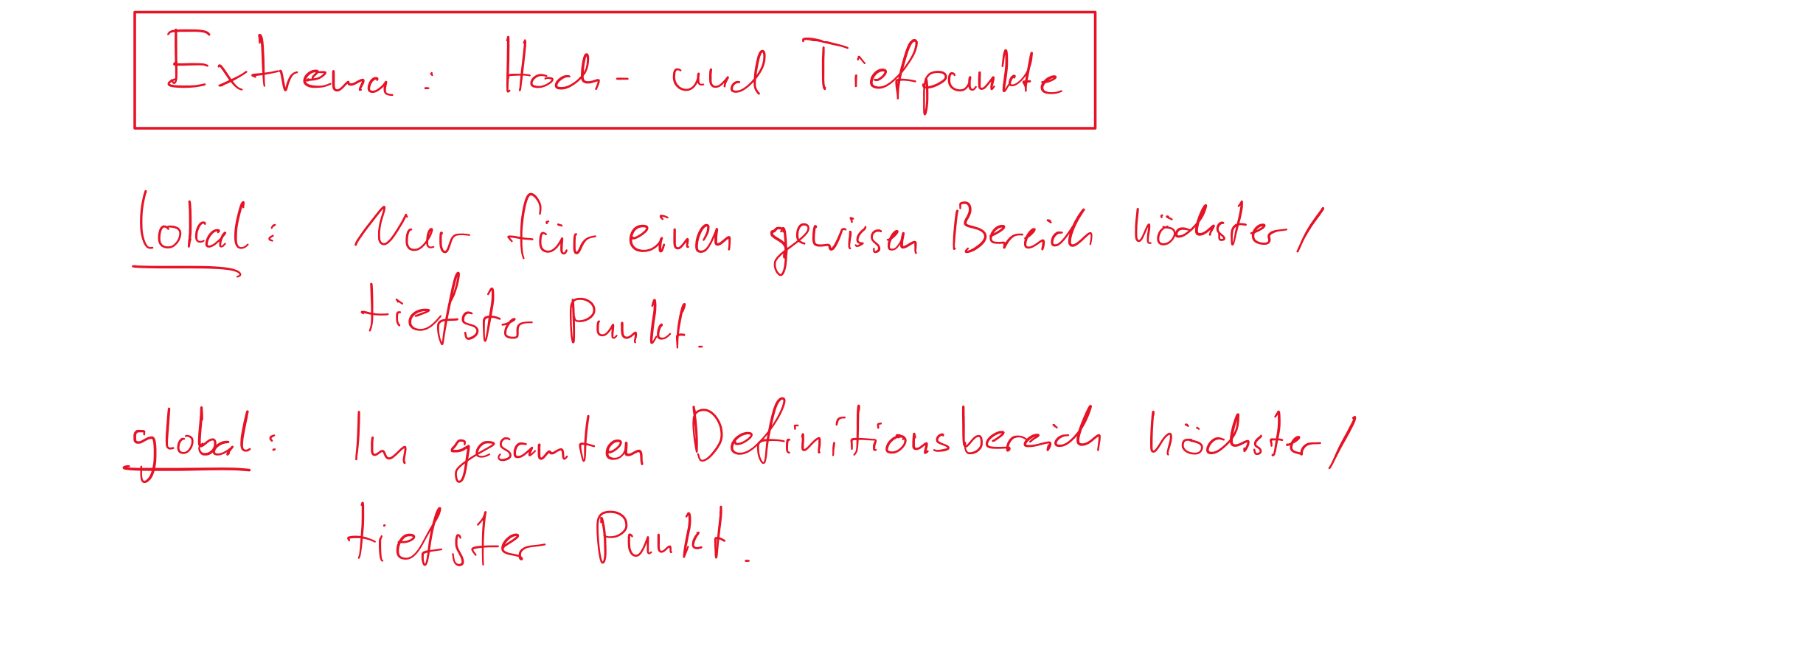 Extrema: Hoch- und Tiefpunkte
lokal: Nur für einen gewissen Bereich höchster/
tiefster Punkt.
global: Im gesamten Definitionsbereich höchster/
tiefster Punkt.